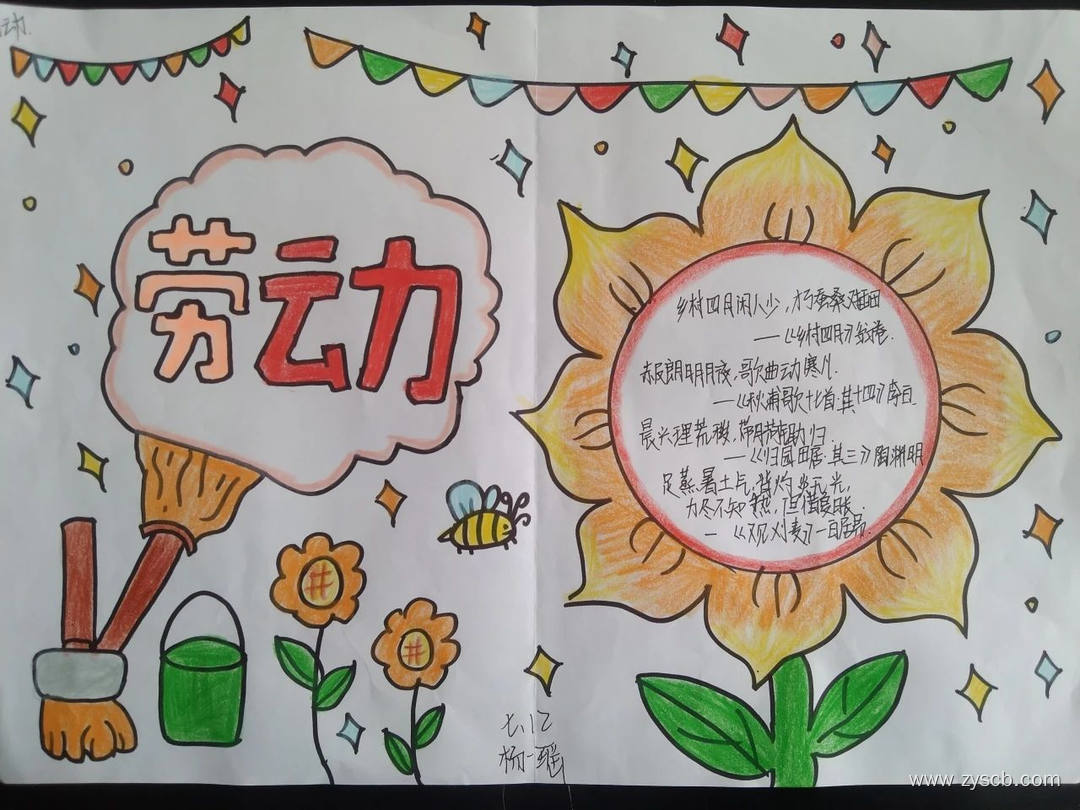 动
劳动
乡村四月闲人少,才了蚕桑又插田
——《乡村四月》翁卷.
赧郎明月夜,歌曲动寒川.
——《秋浦歌十七首·其十四》李白
晨兴理荒秽,带月荷锄归.
——《归园田居·其三》陶渊明
足蒸暑土气,背灼炎天光,
力尽不知热,但惜夏日长.
— 《观刈麦》—白居易.
七.12
杨一瑶
www.zyscb.com